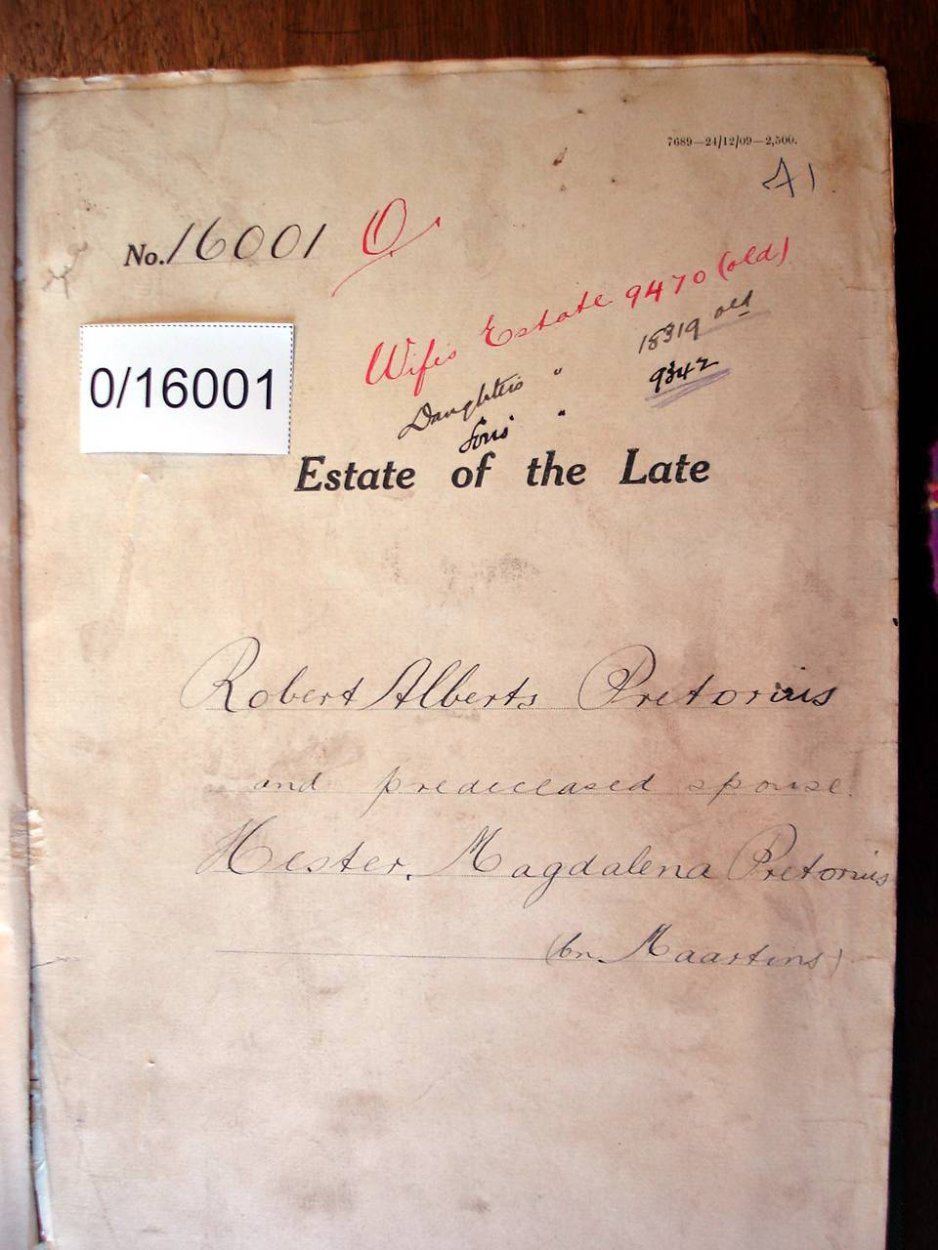 7689—24/12/09—2,500.
41
No. 16001 O.
Wife's Estate 9470 (old)
0/16001
Daughters " 18319 old
Sons " 9342
Estate of the Late
Robert Alberts Pretorius
and predeceased spouse.
Hester Magdalena Pretorius
(bn Maartins)